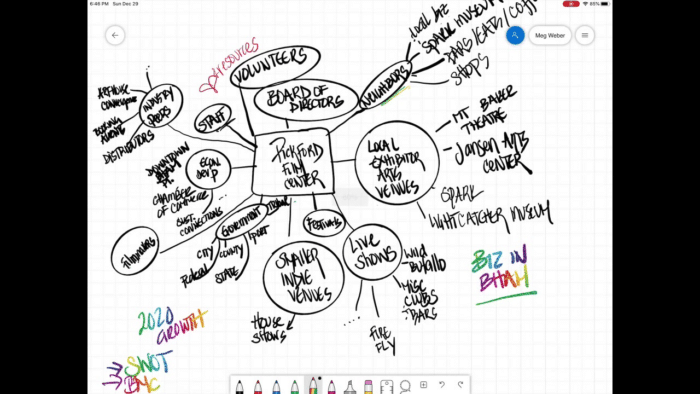 6:46 PM Sun Dec 29
85%
Meg Weber
resources
VOLUNTEERS
BOARD OF
DIRECTORS
NEIGHBORS
local biz
SPARK MUSEUM
BARS/EATS/COFF
SHOPS
ARTHOUSE
CONVERGENCE
BOOKING
AGENTS
DISTRIBUTORS
INDUSTRY
PEERS
STAFF
PICKFORD
FILM
CENTER
LOCAL
EXHIBITOR
ARTS
VENUES
MT BAKER
THEATRE
JANSEN ARTS
CENTER
SPARK
WHATCATCHER MUSEUM
DOWNTOWN
ECON
DEV.P
CHAMBER
OF COMMERCE
CUST.
CONNECTIONS
FILMMAKERS
GOVERNMENT
TRIBAL
PORT
CITY
COUNTY
FEDERAL
STATE
FESTIVALS
SMALLER
INDIE
VENUES
HOUSE
SHOWS
LIVE
SHOWS
WILD
BUFFALO
MISC
CLUBS
BARS
FIRE
FLY
BIZ IN
BHAM
2020
GROWTH
SWOT
BMC